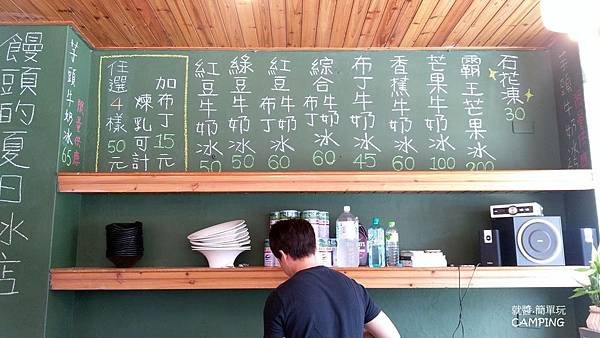 石花凍 30
霸王芒果冰 200
芒果牛奶冰 100
香蕉牛奶冰 60
布丁牛奶冰 45
綜合牛奶布丁冰 60
紅豆牛奶布丁冰 60
綠豆牛奶冰 50
紅豆牛奶冰 50
加布丁15元
煉乳可計
任選4樣50元
芋頭牛奶冰 65
限量供應
饅頭的夏日冰店
就醬.簡單玩
CAMPING